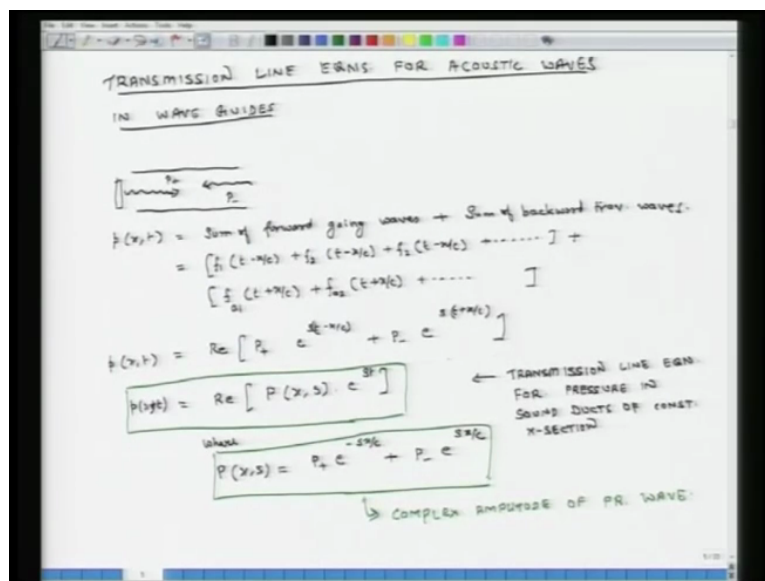 TRANSMISSION LINE EQNS FOR ACOUSTIC WAVES
IN WAVE GUIDES
P+
P-
p(x,t) = Sum of forward going waves + Sum of backward trav. waves.
= [f1 (t-x/c) + f2 (t-x/c) + f3 (t-x/c) + ......] +
[f (t+x/c) + f (t+x/c) + ..... ]
p(x,t) = Re [ P+ e^s(t-x/c) + P- e^s(t+x/c) ]
p(x,t) = Re [ P(x,s). e^st ]
← TRANSMISSION LINE EQN.
FOR PRESSURE IN
SOUND DUCTS OF CONST.
X-SECTION
where
P(x,s) = P+ e^-sx/c + P- e^sx/c
↳ COMPLEX AMPLITUDE OF PR. WAVE.